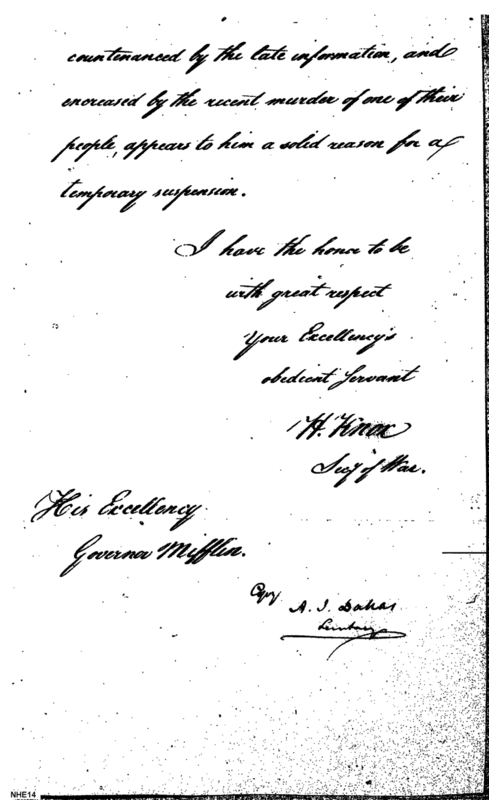 countenanced by the late information, and
encreased by the recent murder of one of their
people, appears to him a solid reason for a
temporary suspension.
I have the honor to be
with great respect
Your Excellency's
obedient Servant
H. Knox
Secy of War.
His Excellency
Governor Mifflin.
Copy
A. J. Dallas
Secretary
NHE14